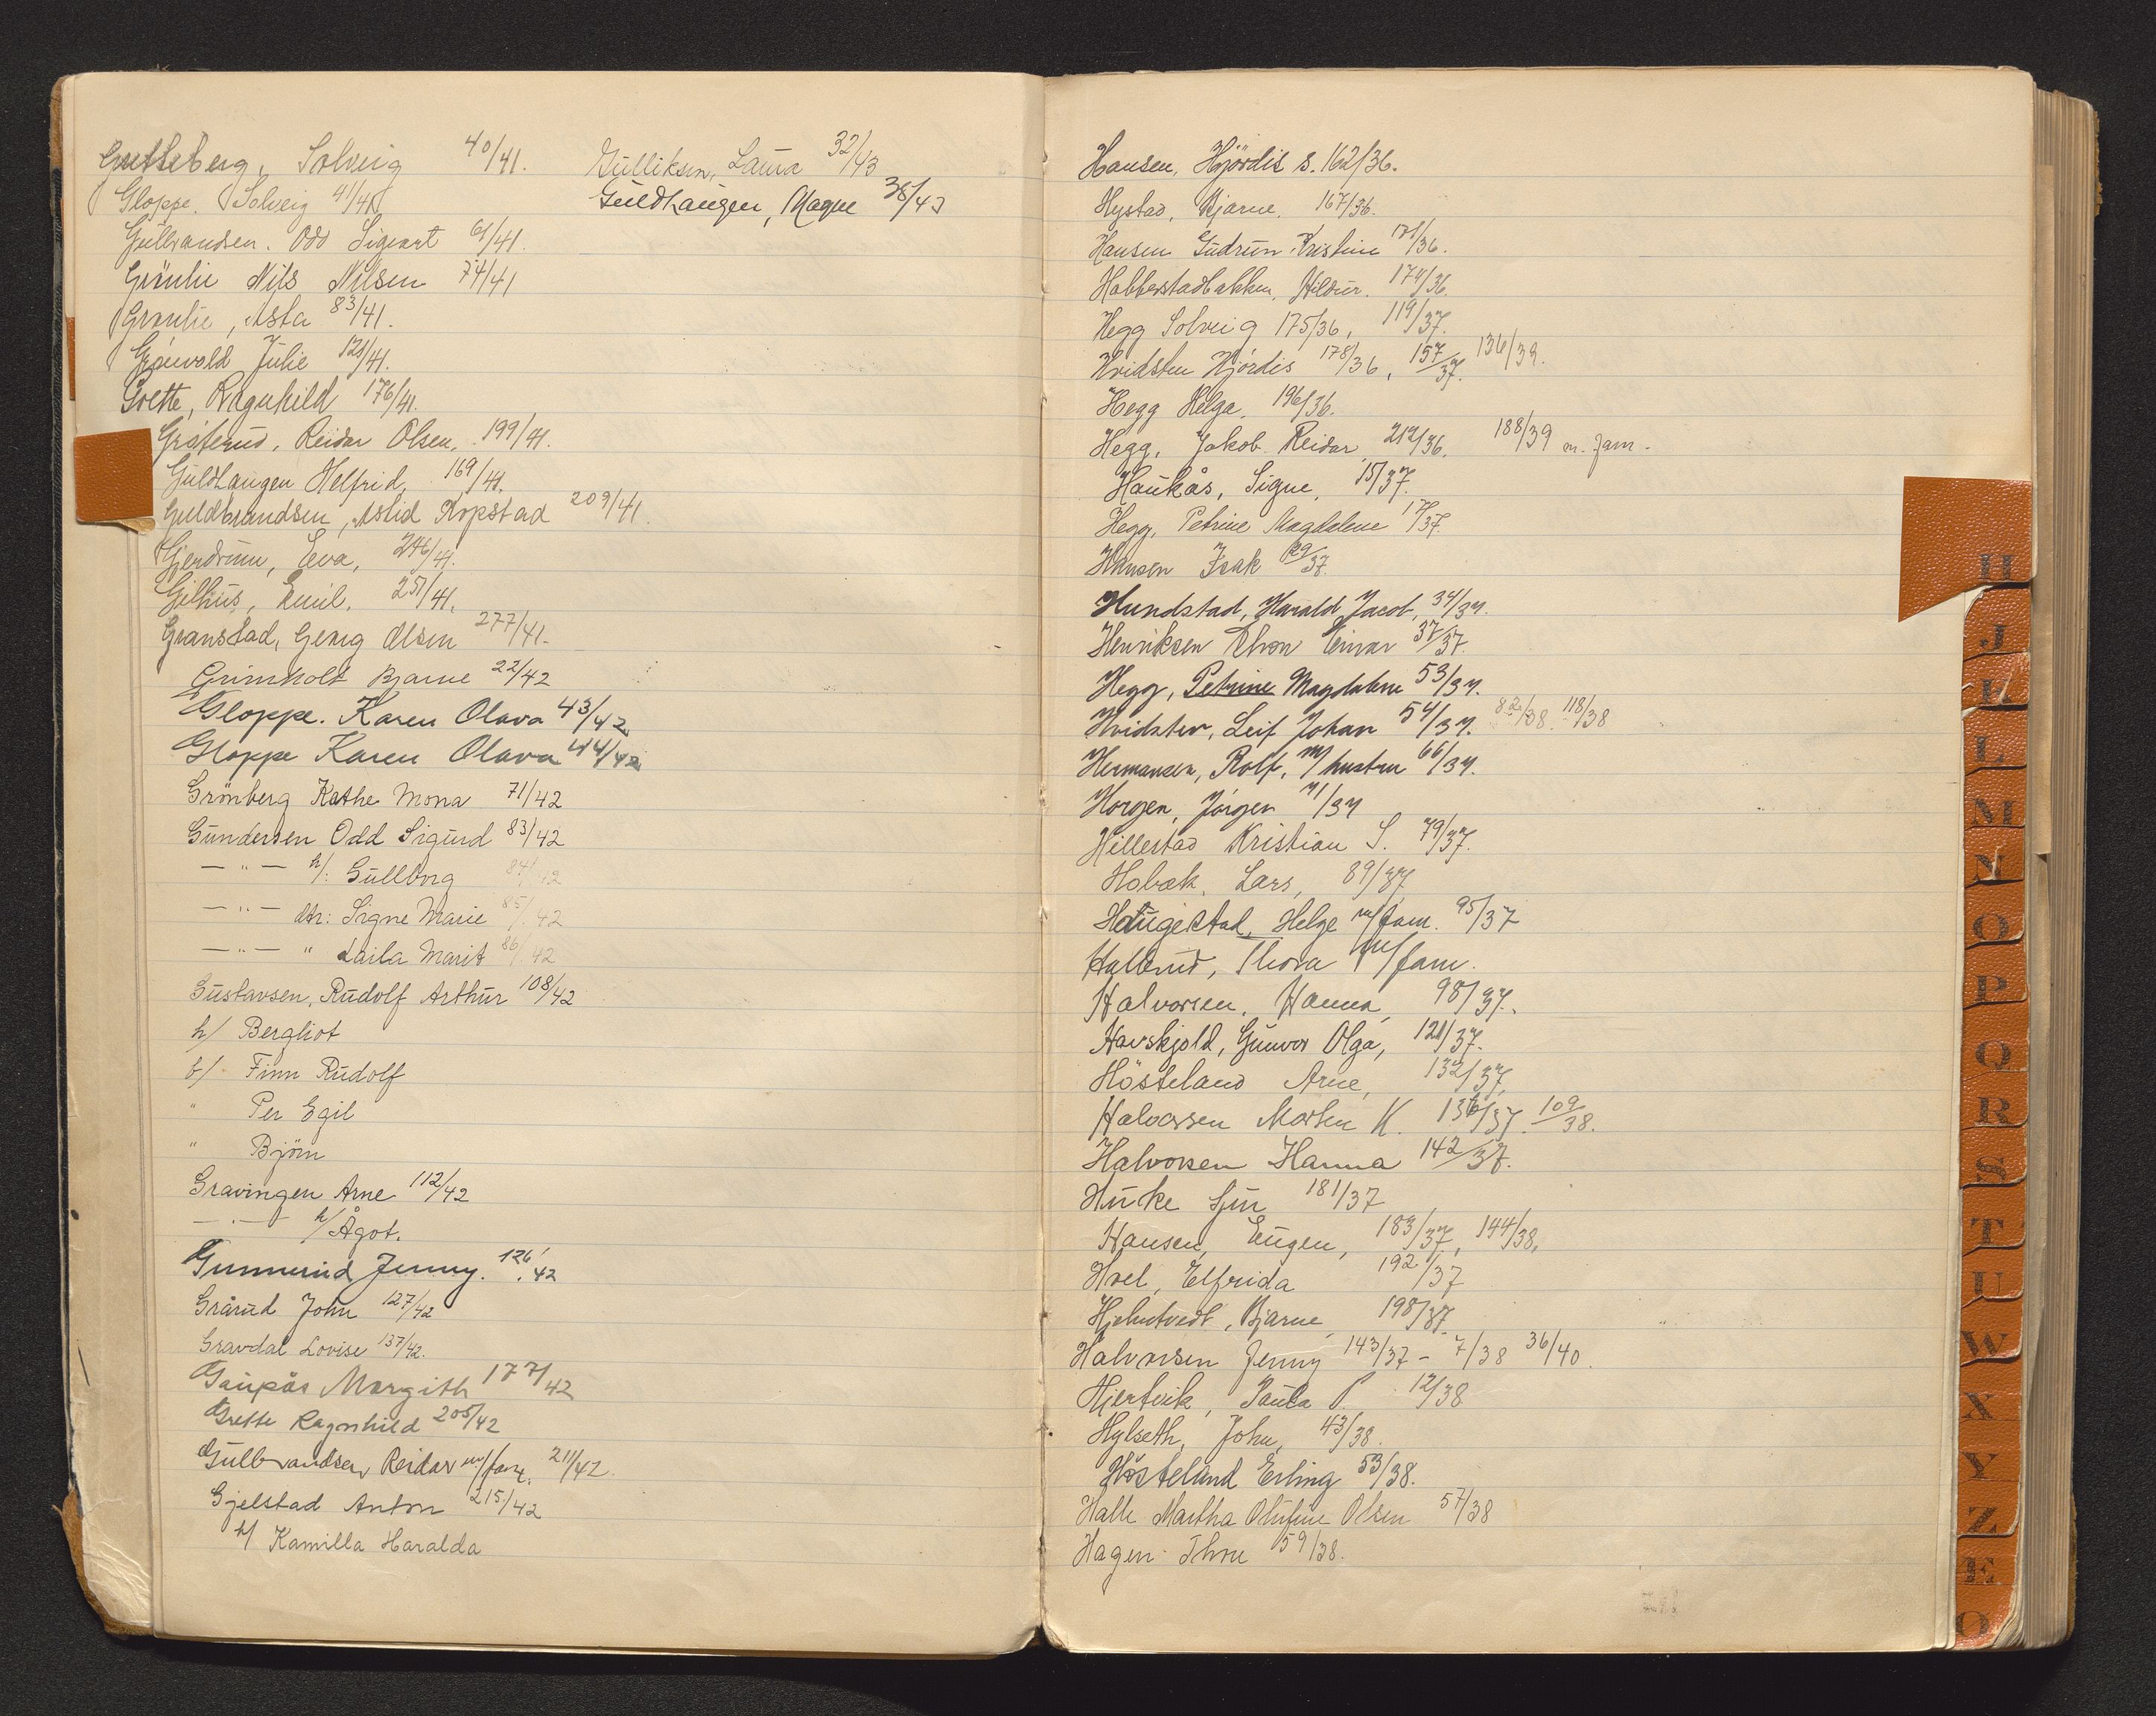 Gretteberg, Solveig 40/41.
Gloppe. Solveig 41/41
Gulbrandsen. Odd Sigvart 61/41.
Grönlie Nils Nilsen 74/41
Grönlie, Asta 83/41.
Grönvold Julie 121/41.
Grette, Ragnhild 176/41.
Gråterud, Reidar Olsen, 199/41.
Guldhaugen Helfrid, 169/41.
Guldbrandsen, Astid Kopstad 209/41.
Gjerdrum, Eva, 246/41.
Gilhus, Emil, 251/41.
Granstad, Georg Olsen 277/41.
Grimholt Bjarne 22/42
Gloppe. Karen Olava 43/42
Gloppe Karen Olava 44/42
Grönberg Kathe Mona 71/42
Gundersen Odd Sigurd 83/42
— " — h/: Gullborg 84/42
— " — dtr: Signe Marie 85/42
— " — " Laila Marit 86/42
Gustavsen, Rudolf Arthur 108/42
h/ Bergliot
b/ Finn Rudolf
" Per Egil
" Björn
Gravingen Arne 112/42
— " — h/ Ågot.
Gunnerud Jenny. 126/42
Grårud John 127/42
Gravdal Lovise 137/42.
Gaupås Margith 177/42
Grette Ragnhild 205/42
Gulbrandsen Reidar m/fam. 211/42
Gjelstad Anton 215/42
h/ Kamilla Haralda
Gulliksen, Laura 32/43
Guldhaugen, Magne 38/43
Hansen, Hjördis s. 162/36.
Hystad, Bjarne, 167/36.
Hansen Gudrun Kristine 171/36.
Habberstadbakken, Hildur. 174/36.
Hegg Solveig 175/36, 119/37.
Hvidsten Hjördis 178/36, 157/37. 136/39.
Hegg Helga, 196/36.
Hegg, Jakob Reidar, 212/36. 188/39 m. fam.
Haukås, Signe, 15/37.
Hegg, Petrine Magdalene 17/37.
Hansen Isak 29/37.
Hundstad, Harald Jacob, 34/37.
Henriksen Thron Einar 37/37.
Hegg, Petrine Magdalene 53/37.
Hvidsten, Leif Johan 54/37. 82/38. 118/38
Hermansen, Rolf, m/hustru 66/37.
Horgen, Jörgen 71/37
Hillestad Kristian S. 79/37.
Hobæk, Lars, 89/37
Haugestad, Helge m/fam. 95/37
Hallerud, Thora m/fam.
Halvorsen, Hanna, 98/37.
Havskjold, Gunvor Olga, 121/37.
Hösteland Arne, 132/37,
Halvorsen Morten K. 136/37. 109/38.
Halvorsen Hanna 142/37.
Huke Sjur 181/37
Hansen, Eugen, 183/37, 144/38,
Hvel, Elfrida 192/37
Hjelmtvedt, Bjarne, 198/37.
Halvorsen Jenny 143/37 – 7/38 36/40.
Hjertvik, Paula P. 12/38
Hylseth, John, 43/38.
Hösteland Erling 53/38.
Halle Martha Olufine Olsen 57/38
Hagen Thore 59/38.
H
L
M
N
O
P
Q
R
S
T
U
W
X
Y
Z
Æ
Ø